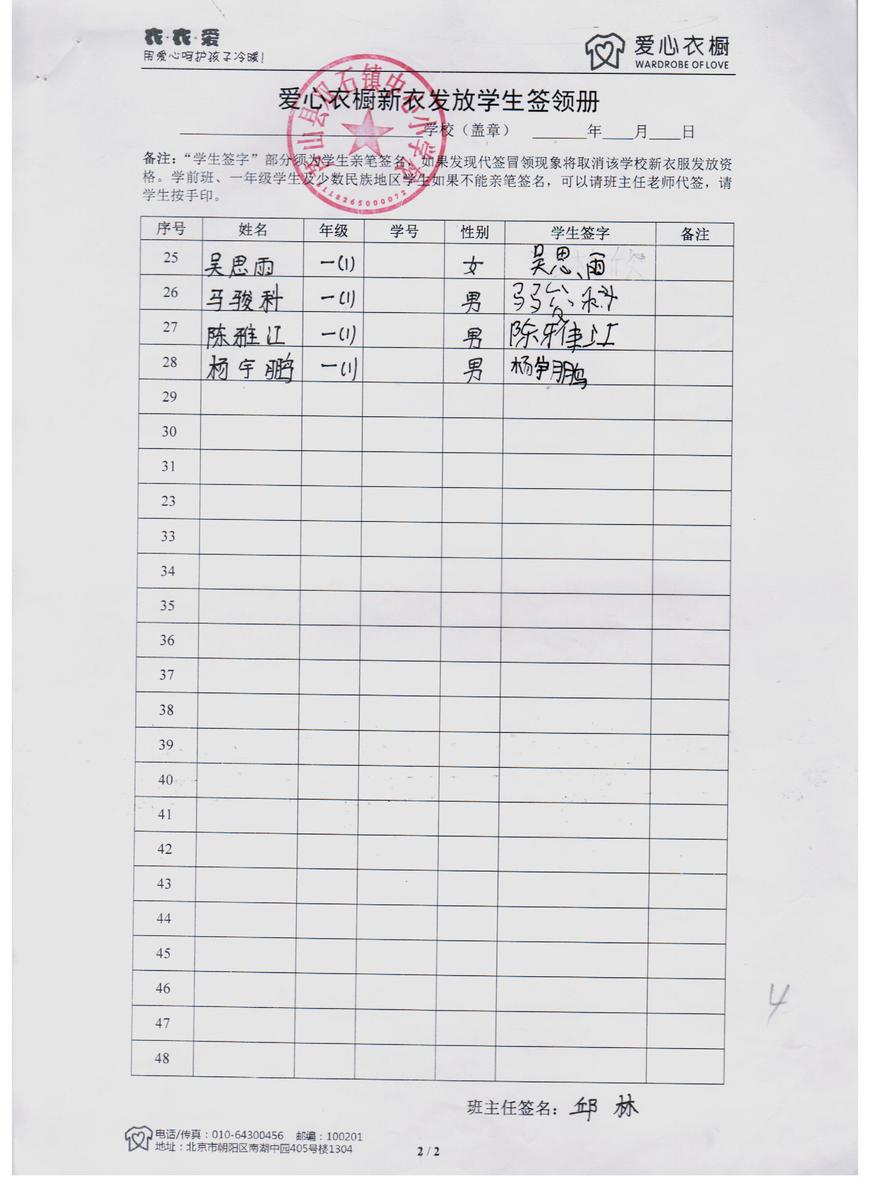 衣·衣·爱
用爱心呵护孩子冷暖!
爱心衣橱
WARDROBE OF LOVE
爱心衣橱新衣发放学生签领册
学校(盖章) 年 月 日
备注:“学生签字”部分须为学生亲笔签名,如果发现代签冒领现象将取消该学校新衣服发放资
格。学前班、一年级学生及少数民族地区学生如果不能亲笔签名,可以请班主任老师代签,请
学生按手印。
序号 姓名 年级 学号 性别 学生签字 备注
25 吴思雨 一(1) 女 吴思雨
26 马骏科 一(1) 男 马骏科
27 陈雅江 一(1) 男 陈雅江
28 杨宇鹏 一(1) 男 杨宇鹏
29
30
31
23
33
34
35
36
37
38
39
40
41
42
43
44
45
46
47
48
4
班主任签名:邱林
电话/传真:010-64300456 邮编:100201
地址:北京市朝阳区南湖中园405号楼1304
2 / 2